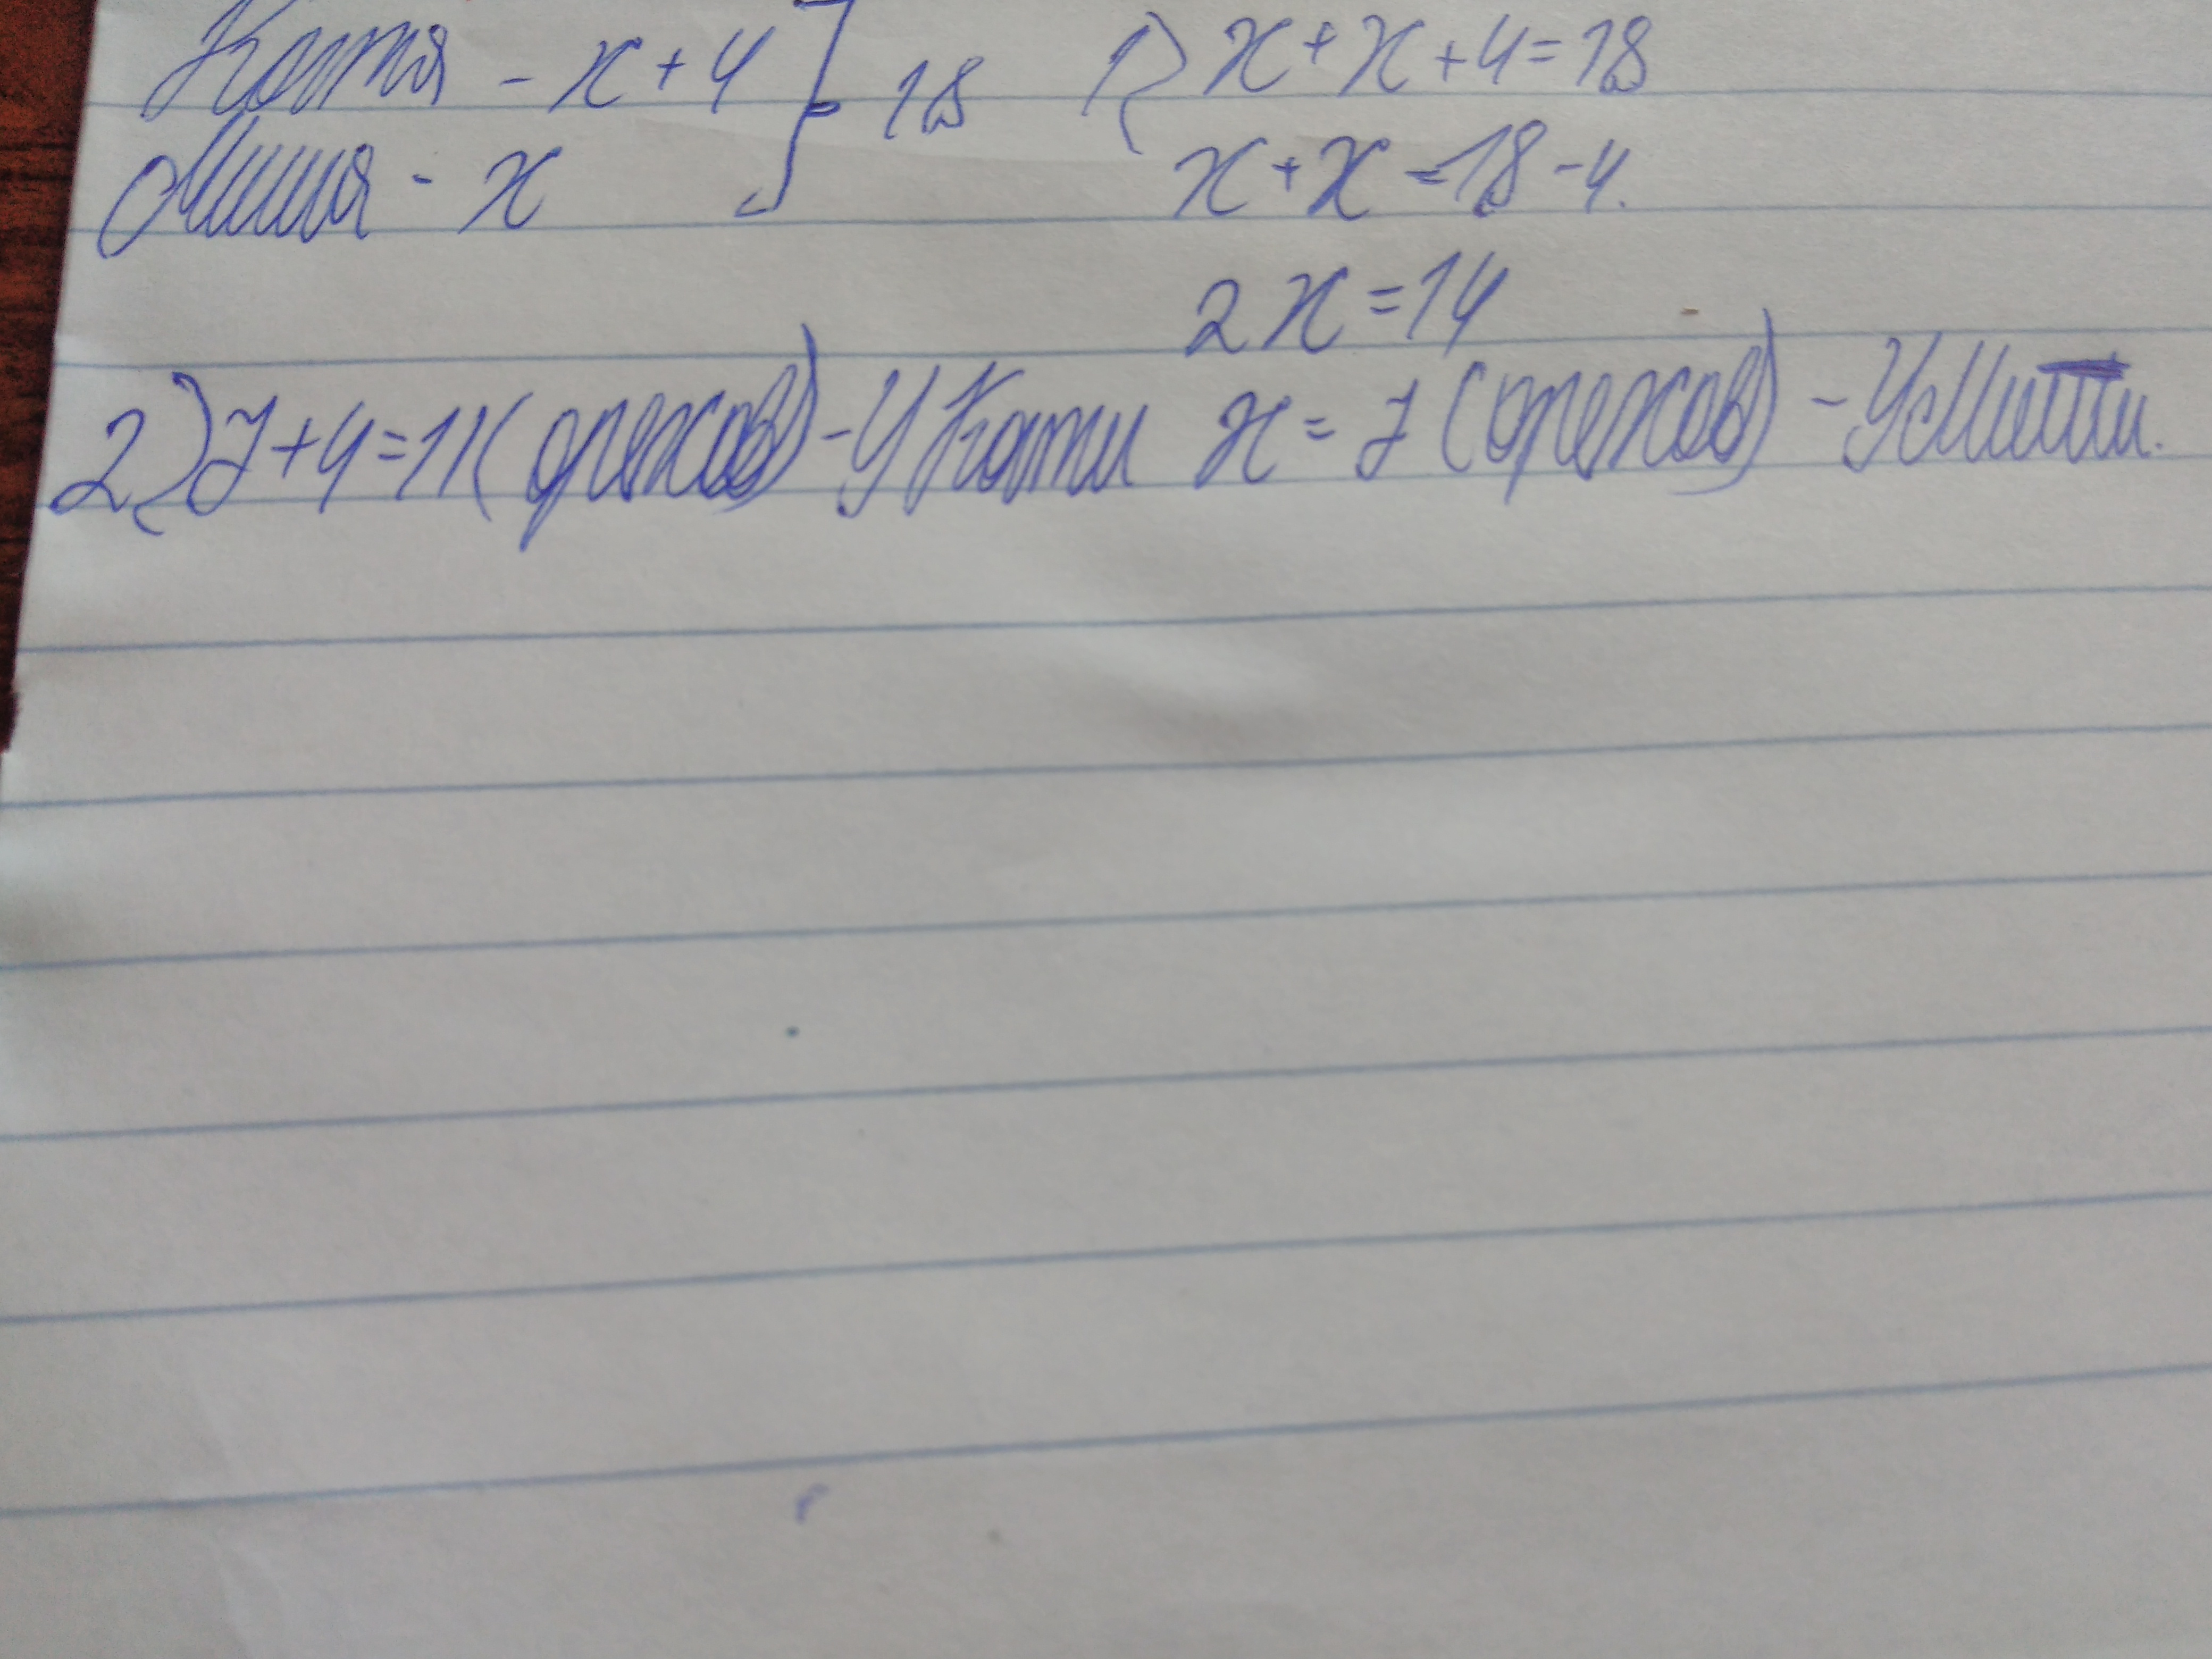 Катя - x + 4 ] - 18
Миша - x
1) x + x + 4 = 18
x + x = 18 - 4.
2x = 14
x = 7 (орехов) - У Миши.
2) 7 + 4 = 11 (орехов) - У Кати